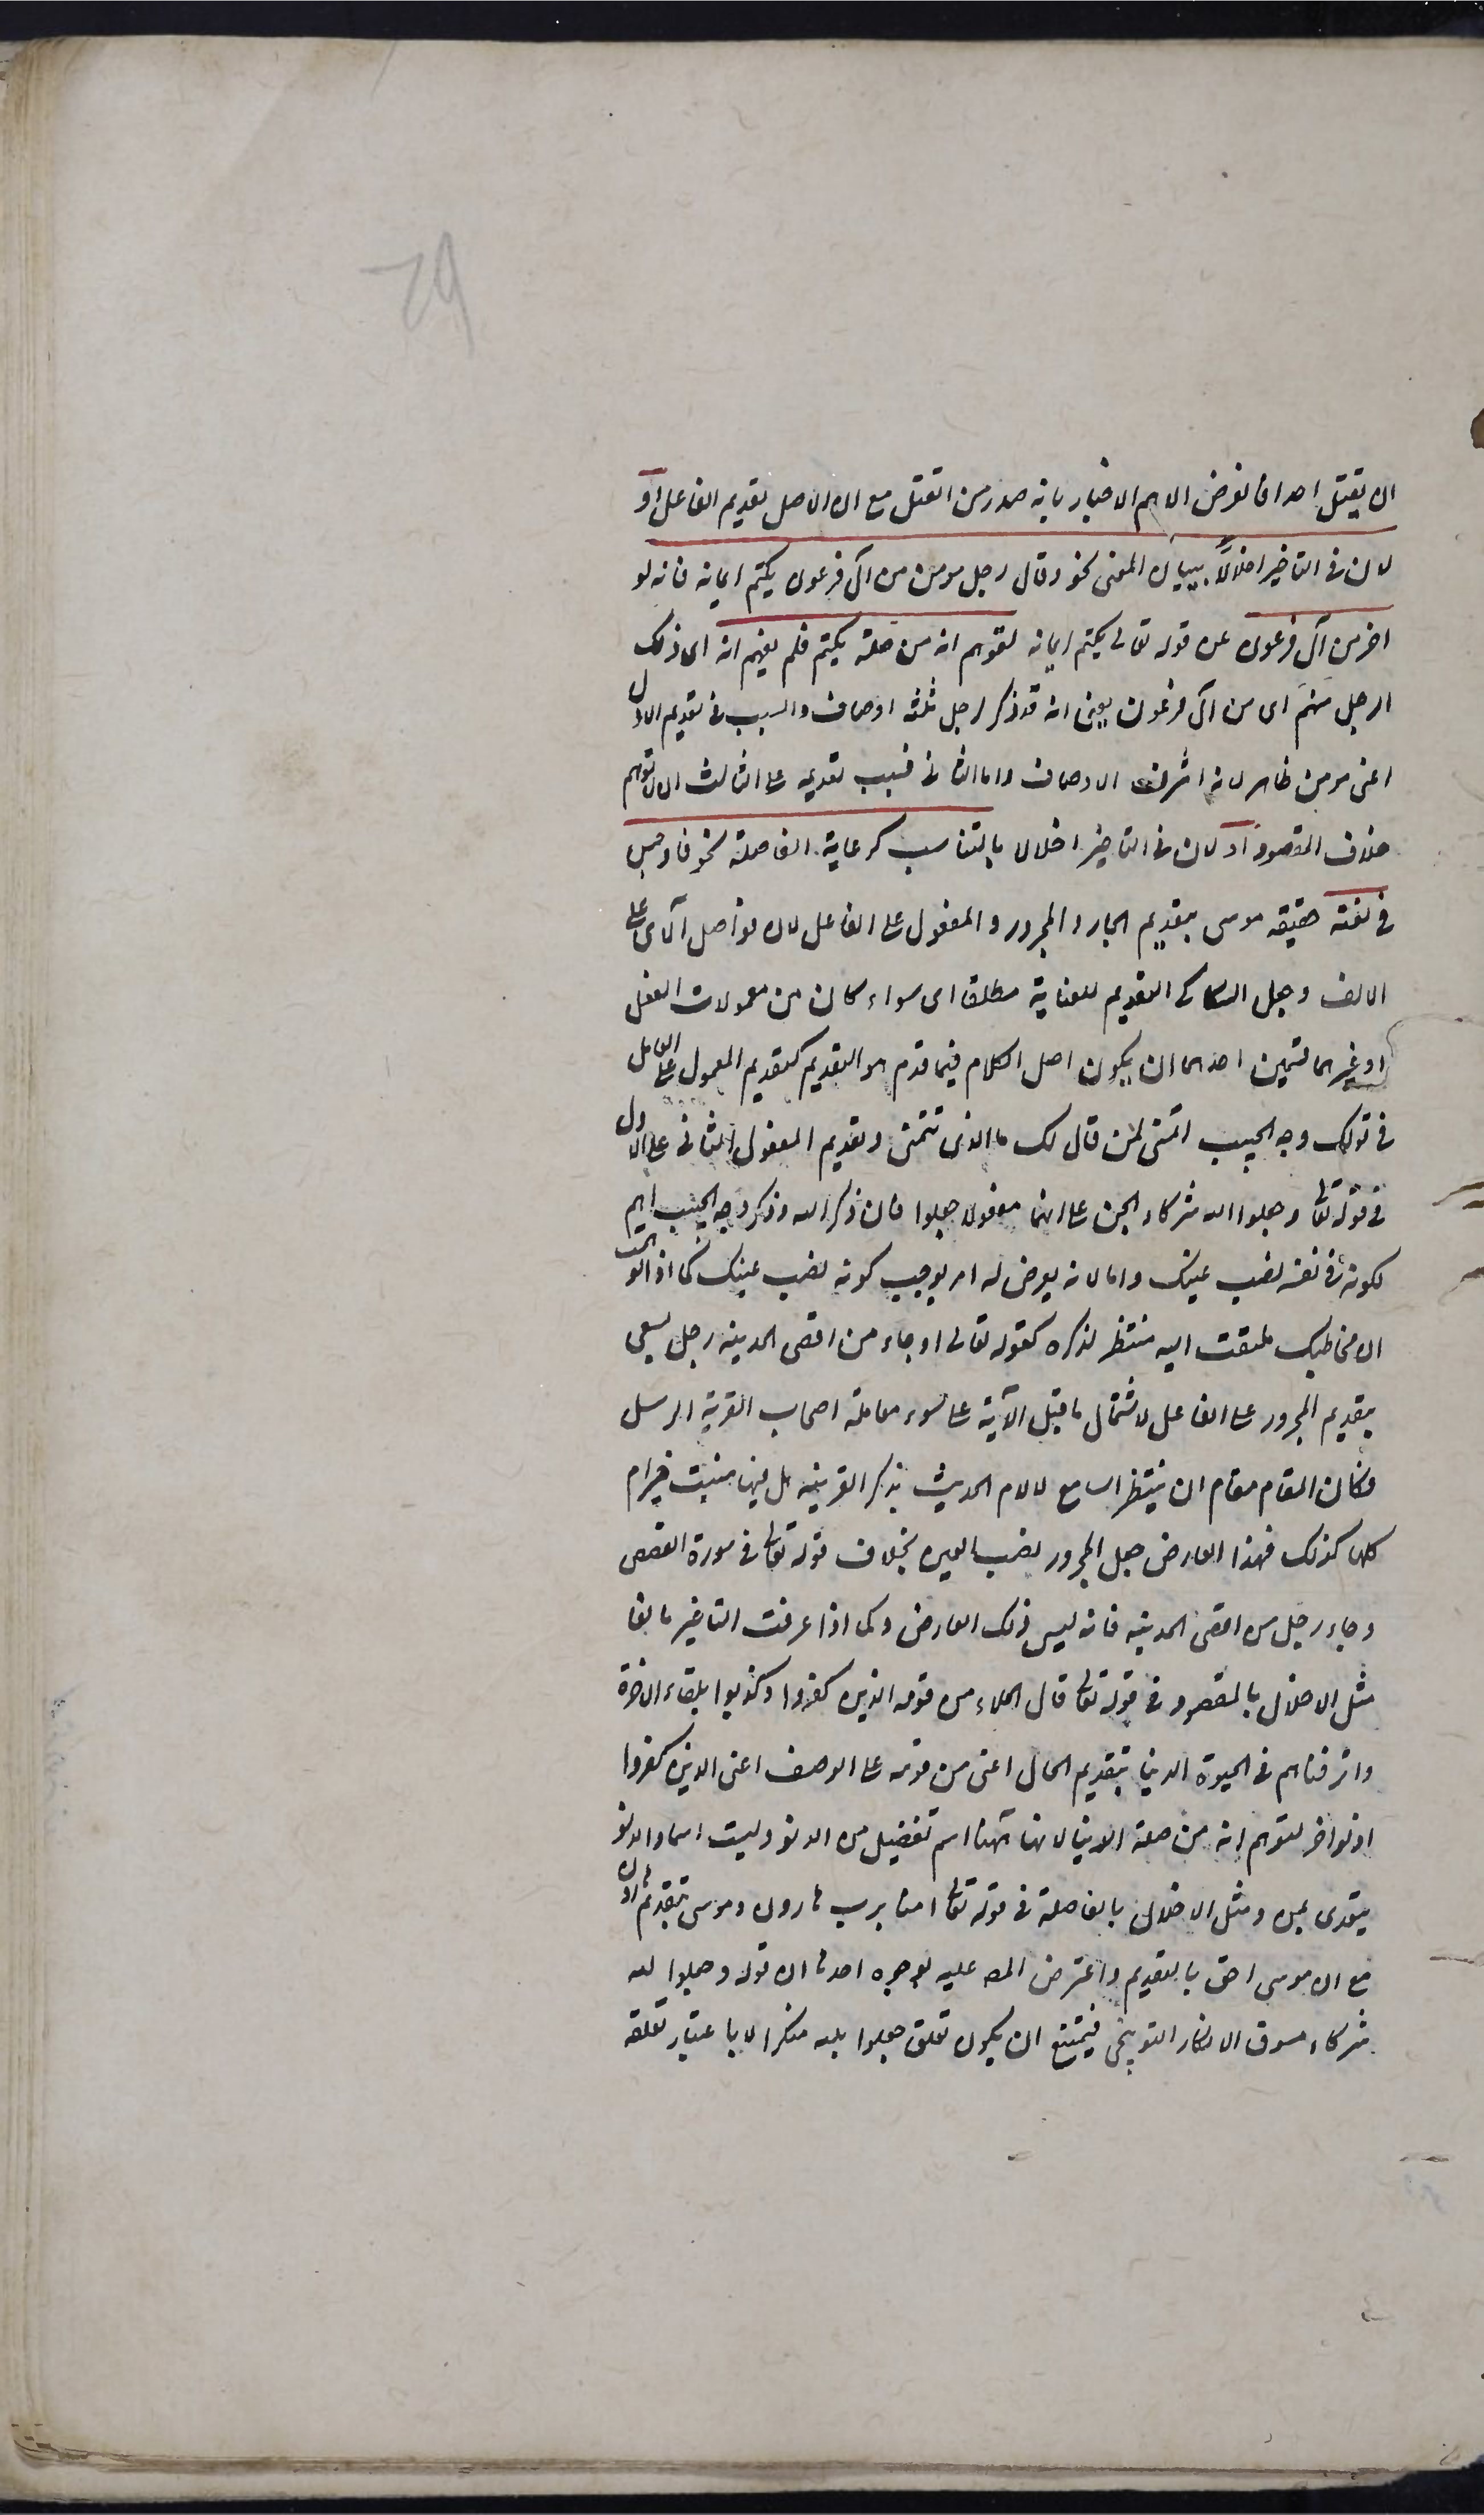 ان يقتل احدا فالغرض الاهم الاخبار بانه صدر من القتل مع ان الاصل تقديم الفاعل او
لان فى التاخير اخلالًا ببيان المعنى نحو وقال رجل مومن من آل فرعون يكتم ايمانه فانه لو
اخر من آل فرعون عن قوله تعالى يكتم ايمانه لتوهم انه من صلة يكتم فلم يفهم انه اى ذلك
الرجل منهم اى من آل فرعون يعنى انه قد ذكر لرجل ثلثه اوصاف والسبب فى تقديم الاول
اعنى مومن ظاهر لانه اشرف الاوصاف واما الثانى فسبب تقديمه على الثالث ان لا يتوهم
خلاف المقصود او لان فى التاخير اخلالا بالتناسب كرعاية الفاصلة نحو فاوجس
فى نفسه خيفة موسى بتقديم الجار والمجرور والمفعول على الفاعل لان فواصل الآى على
الالف وجعل السكاكى التقديم للعناية مطلقا اى سواء كان من معمولات الفعل
او غيرها قسمين احدهما ان يكون اصل الكلام فيما قدم هو التقديم كتقديم المعمول على العامل
فى قولك وجه الحبيب اتمنى لمن قال لك ما الذى تتمنى وتقديم المفعول الثانى على الاول
فى قوله تعا وجعلوا لله شركاء الجن على انهما مفعولا جعلوا فان ذكر الله وذكر وجه الحبيب اهم
لكونه فى نفسه نصب عينك واما لانه يعرض له امر يوجب كونه نصب عينك كما اذا توهمت
ان مخاطبك ملتفت اليه منتظر لذكره كقوله تعالى وجاء من اقصى المدينه رجل يسعى
بتقديم المجرور على الفاعل لاشتمال ما قبل الآية على سوء معاملة اصحاب القرية الرسل
فكان المقام مقام ان ينتظر السامع لالمام الحديث بذكر القرينه هل فيها منبت خير ام
كلها كذلك فهذا العارض جعل المجرور نصب العين بخلاف قوله تعالى فى سورة القصص
وجاء رجل من اقصى المدينه فانه ليس ذلك العارض وكما اذا عرفت التاخير مانعا
مثل الاخلال بالمقصود فى قوله تعالى قال الملاء من قومه الذين كفروا وكذبوا بلقاء الاخرة
واترفناهم فى الحيوة الدنيا بتقديم الحال اعنى من قومه على الوصف اعنى الذين كفروا
اذ لو اخر لتوهم انه من صلة الدنيا لانها ههنا اسم تفضيل من الدنو وليست اسما والدنو
يتعدى بمن ومثل الاخلال بالفاصلة فى قوله تعالى امنا برب هارون وموسى بتقديم هارون
مع ان موسى احق بالتقديم واعترض المصـ عليه بوجوه احدها ان قوله وجعلوا لله
شركاء مسوق الانكار التوبيخى فيمتنع ان يكون تعلق جعلوا بلله منكرا الا باعتبار تعلقه